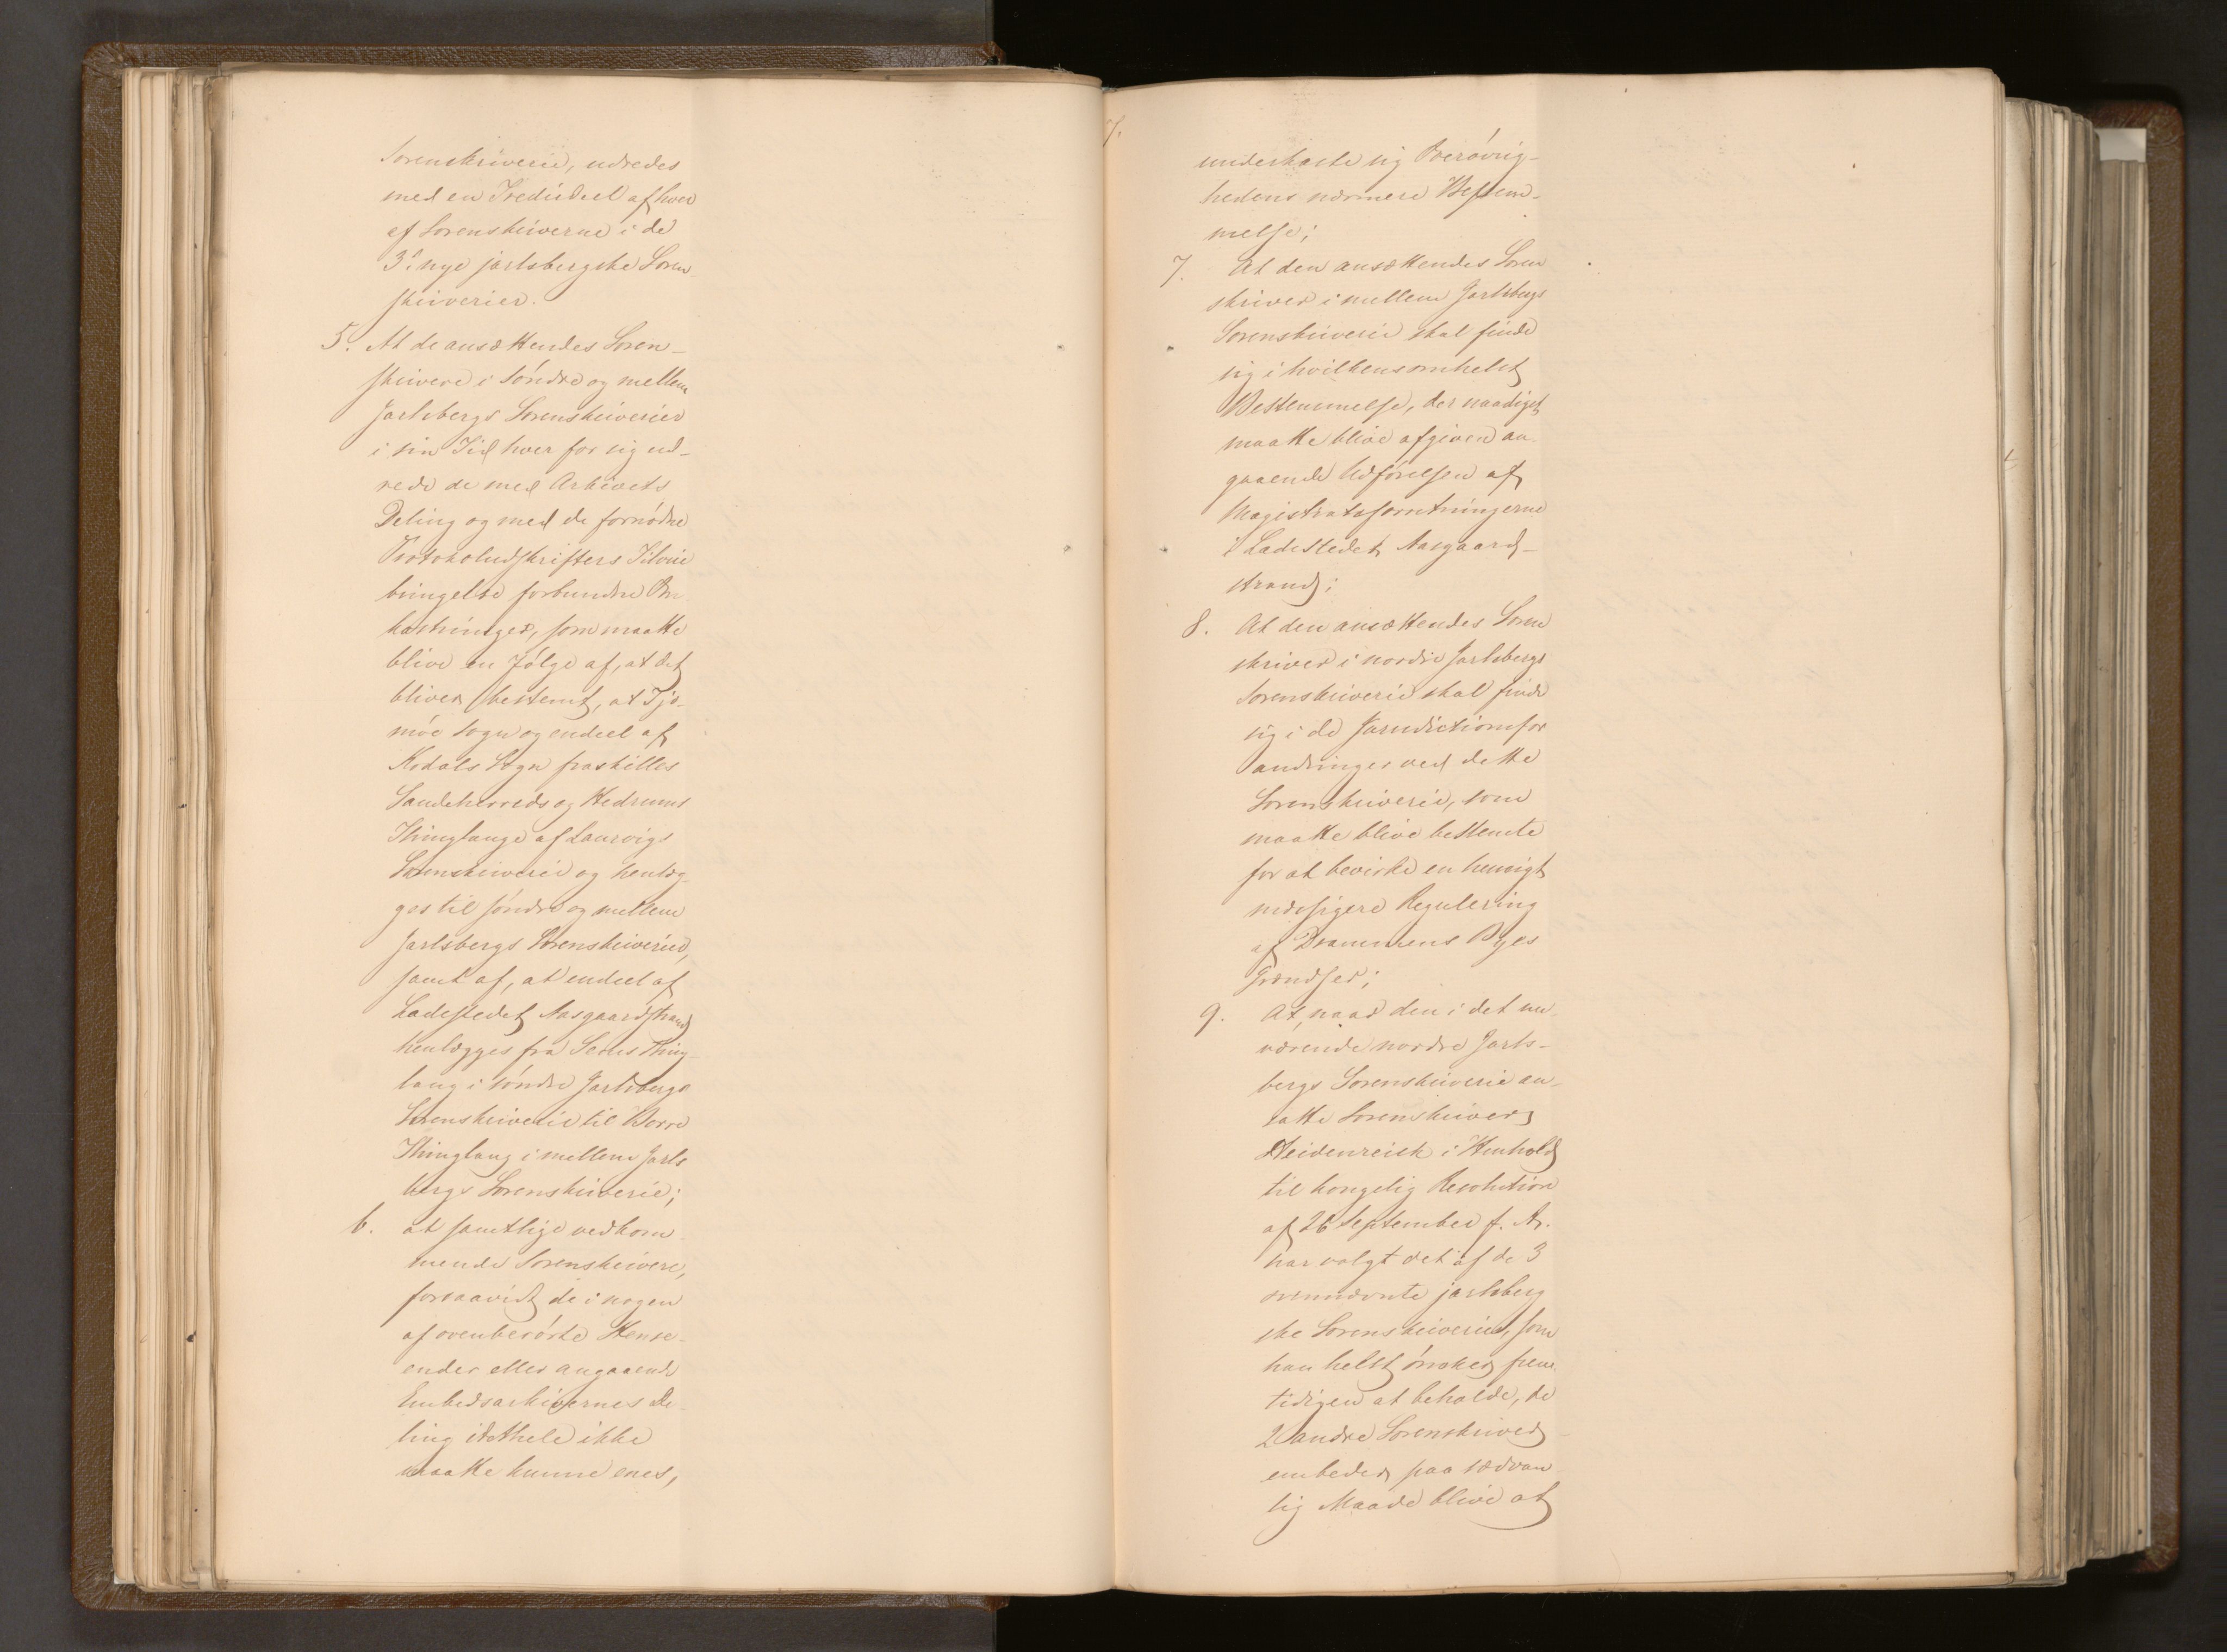 Sorenskriverie, udredes
med en Trediedeel af hver
af Sorenskriverne i de
3de nye jarlsbergske Soren
skriverier.
5. At de ansættendes Soren-
skrivere i søndre og mellem
Jarlsbergs Sorenskriverier
i sin Tid hver for sig ud-
rede de med Arkivets
Deling og med de fornødne
Protokoludskrifters Tilveie
bringelse forbundne Om
kostninger, som maatte
blive en Følge af, at det
bliver bestemt, at Tjø-
møe Sogn og endeel af
Kodals Sogn fraskilles
Sandeherreds og Hedrums
Thinglauge af Laurvigs
Sorenskriverie og henlæg-
ges til søndre og mellem
Jarlsbergs Sorenskriverier,
samt af, at endeel af
Ladestedet Aasgaardstrand
henlægges fra Sems Thing-
laug i søndre Jarlsbergs
Sorenskriverie til Borre
Thinglaug i mellem Jarls
bergs Sorenskriverie;
6. at samtlige vedkom-
mende Sorenskrivere,
forsaavidt de i nogen
af ovenberørte Hense-
ender eller angaaende
Embedsarkivernes De-
ling idethele ikke
maatte kunne enes,
7.
underkaste sig Overøvrig-
hedens nærmere Bestem-
melse;
7. At den ansættendes Soren
skriver i mellem Jarlsbergs
Sorenskriverie skal finde
sig i hvilkensomhelst
Bestemmelse, der naadigst
maatte blive afgiven an-
gaaende Udførelsen af
Magistratsforretningerne
i Ladestedet Aasgaard-
strand;
8. At den ansættendes Soren
skriver i nordre Jarlsbergs
Sorenskriverie skal finde
sig i de Jurisdictionsfor
andringer ved dette
Sorenskriverie, som
maatte blive bestemte
for at bevirke en hensigts
mæssigere Regulering
af Drammens Byes
Grændser;
9. At, naar den i det nu-
værende nordre Jarls-
bergs Sorenskriverie an-
satte Sorenskriver
Heidenreich i Henhold
til kongelig Resolution
af 26 September f. Ar.
har valgt det af de 3
ovennævnte jarlsberg
ske Sorenskriverier, som
han helst ønsker frem-
tidigen at beholde, de
2 andre Sorenskriver
embeder paa sædvan
lig Maade blive at